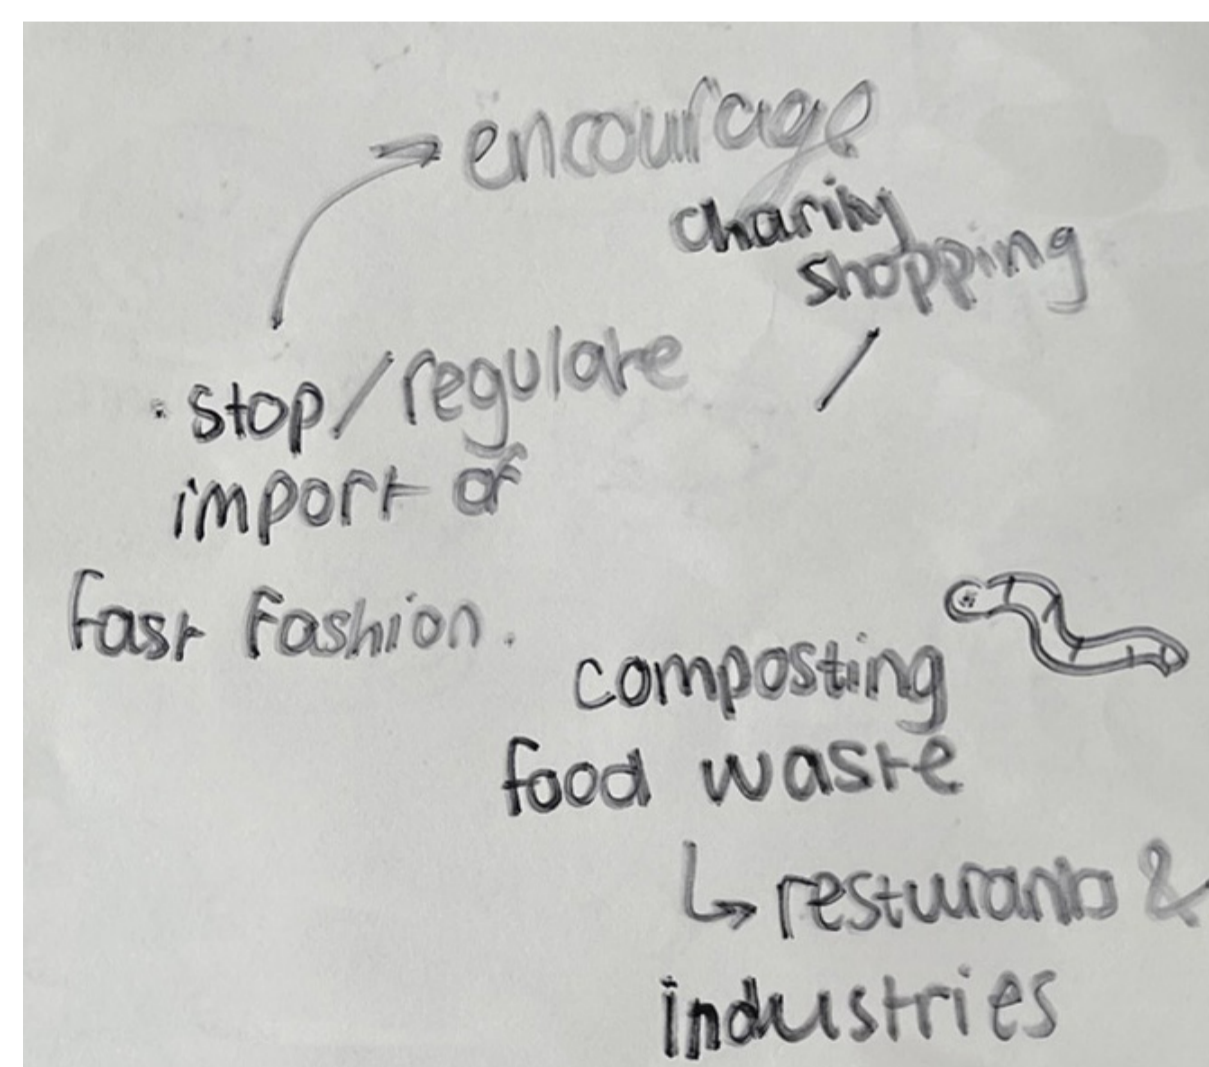 → encourage
charity
shopping
· stop/regulate
import of
fast fashion.
composting
food waste
↳ resturants &
industries